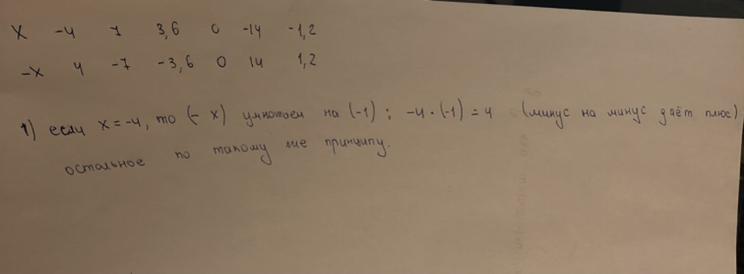 x -4 7 3,6 0 -14 -1,2
-x 4 -7 -3,6 0 14 1,2
1) если x = -4, то (- x) умножаем на (-1) ; -4 · (-1) = 4 (минус на минус даёт плюс)
остальное по такому же принципу.